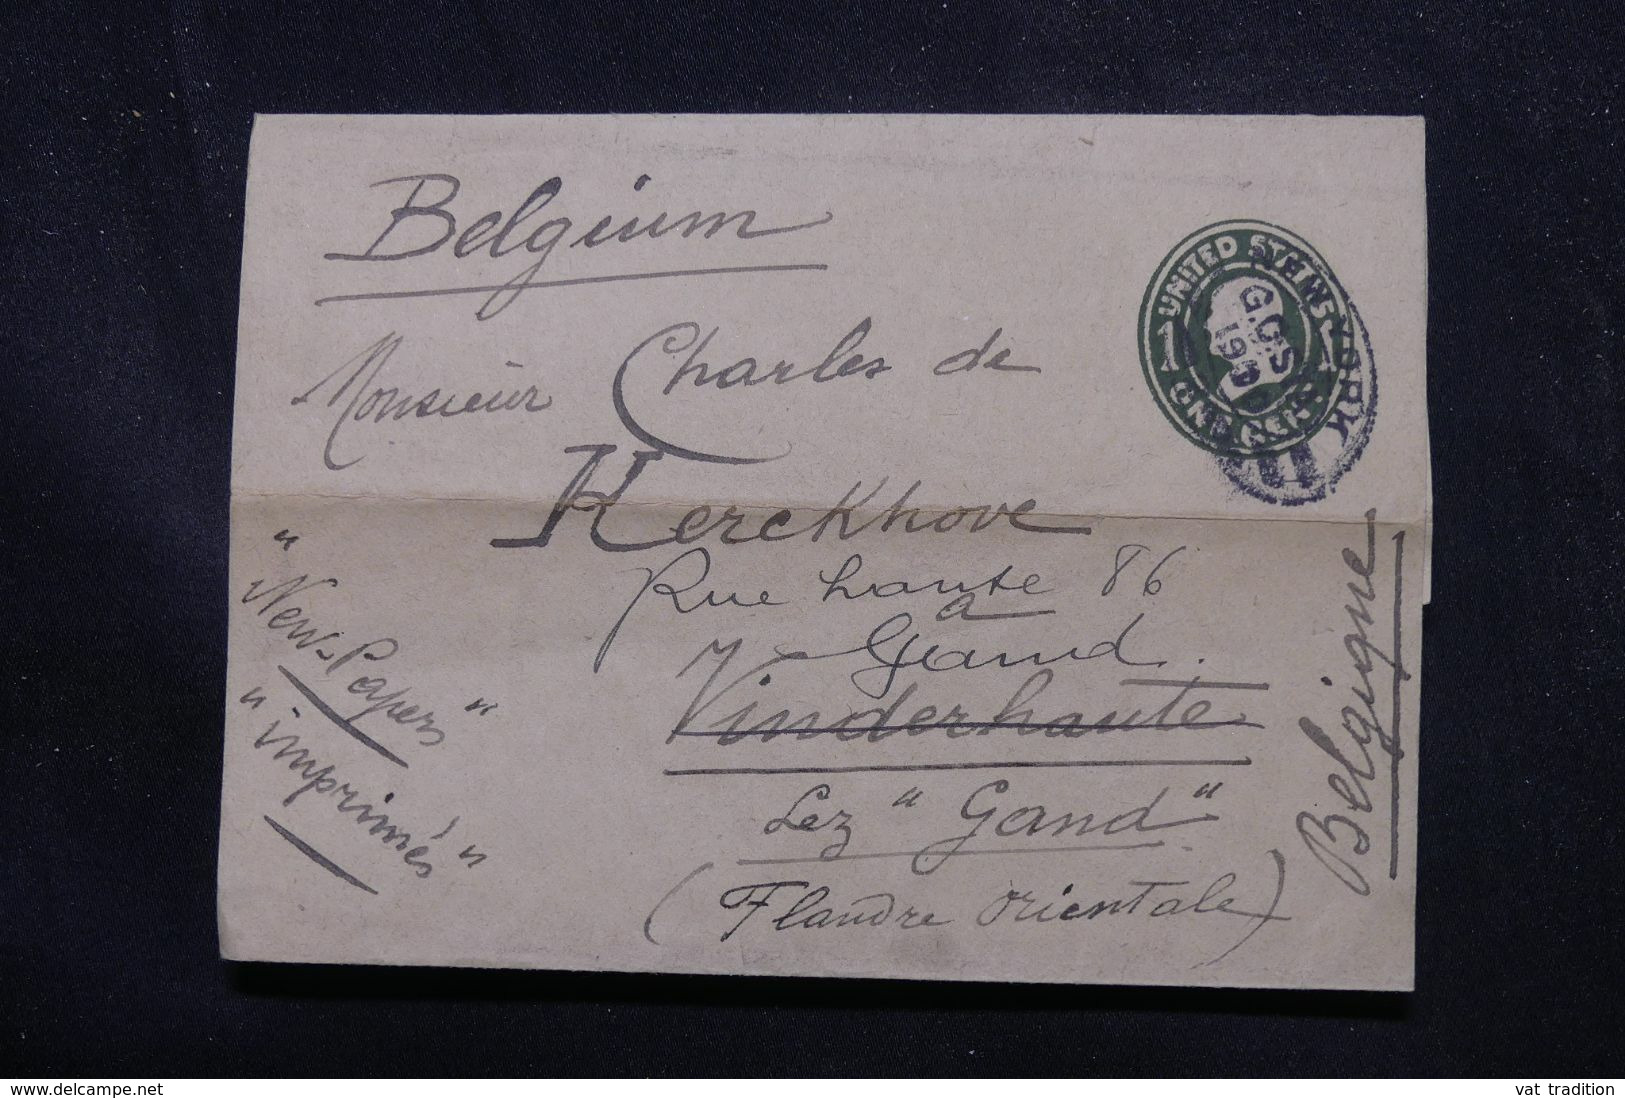 Belgium
Monsieur Charles de
Kerckhove
Rue haute 86
a
Gand.
Vinderhaute
Lez "Gand"
(Flandre Orientale)
"New-Papers"
"imprimés"
Belgique
UNITED STATES
ONE CENT
1
NEW YORK
G.C.S
www.delcampe.net
vat_tradition